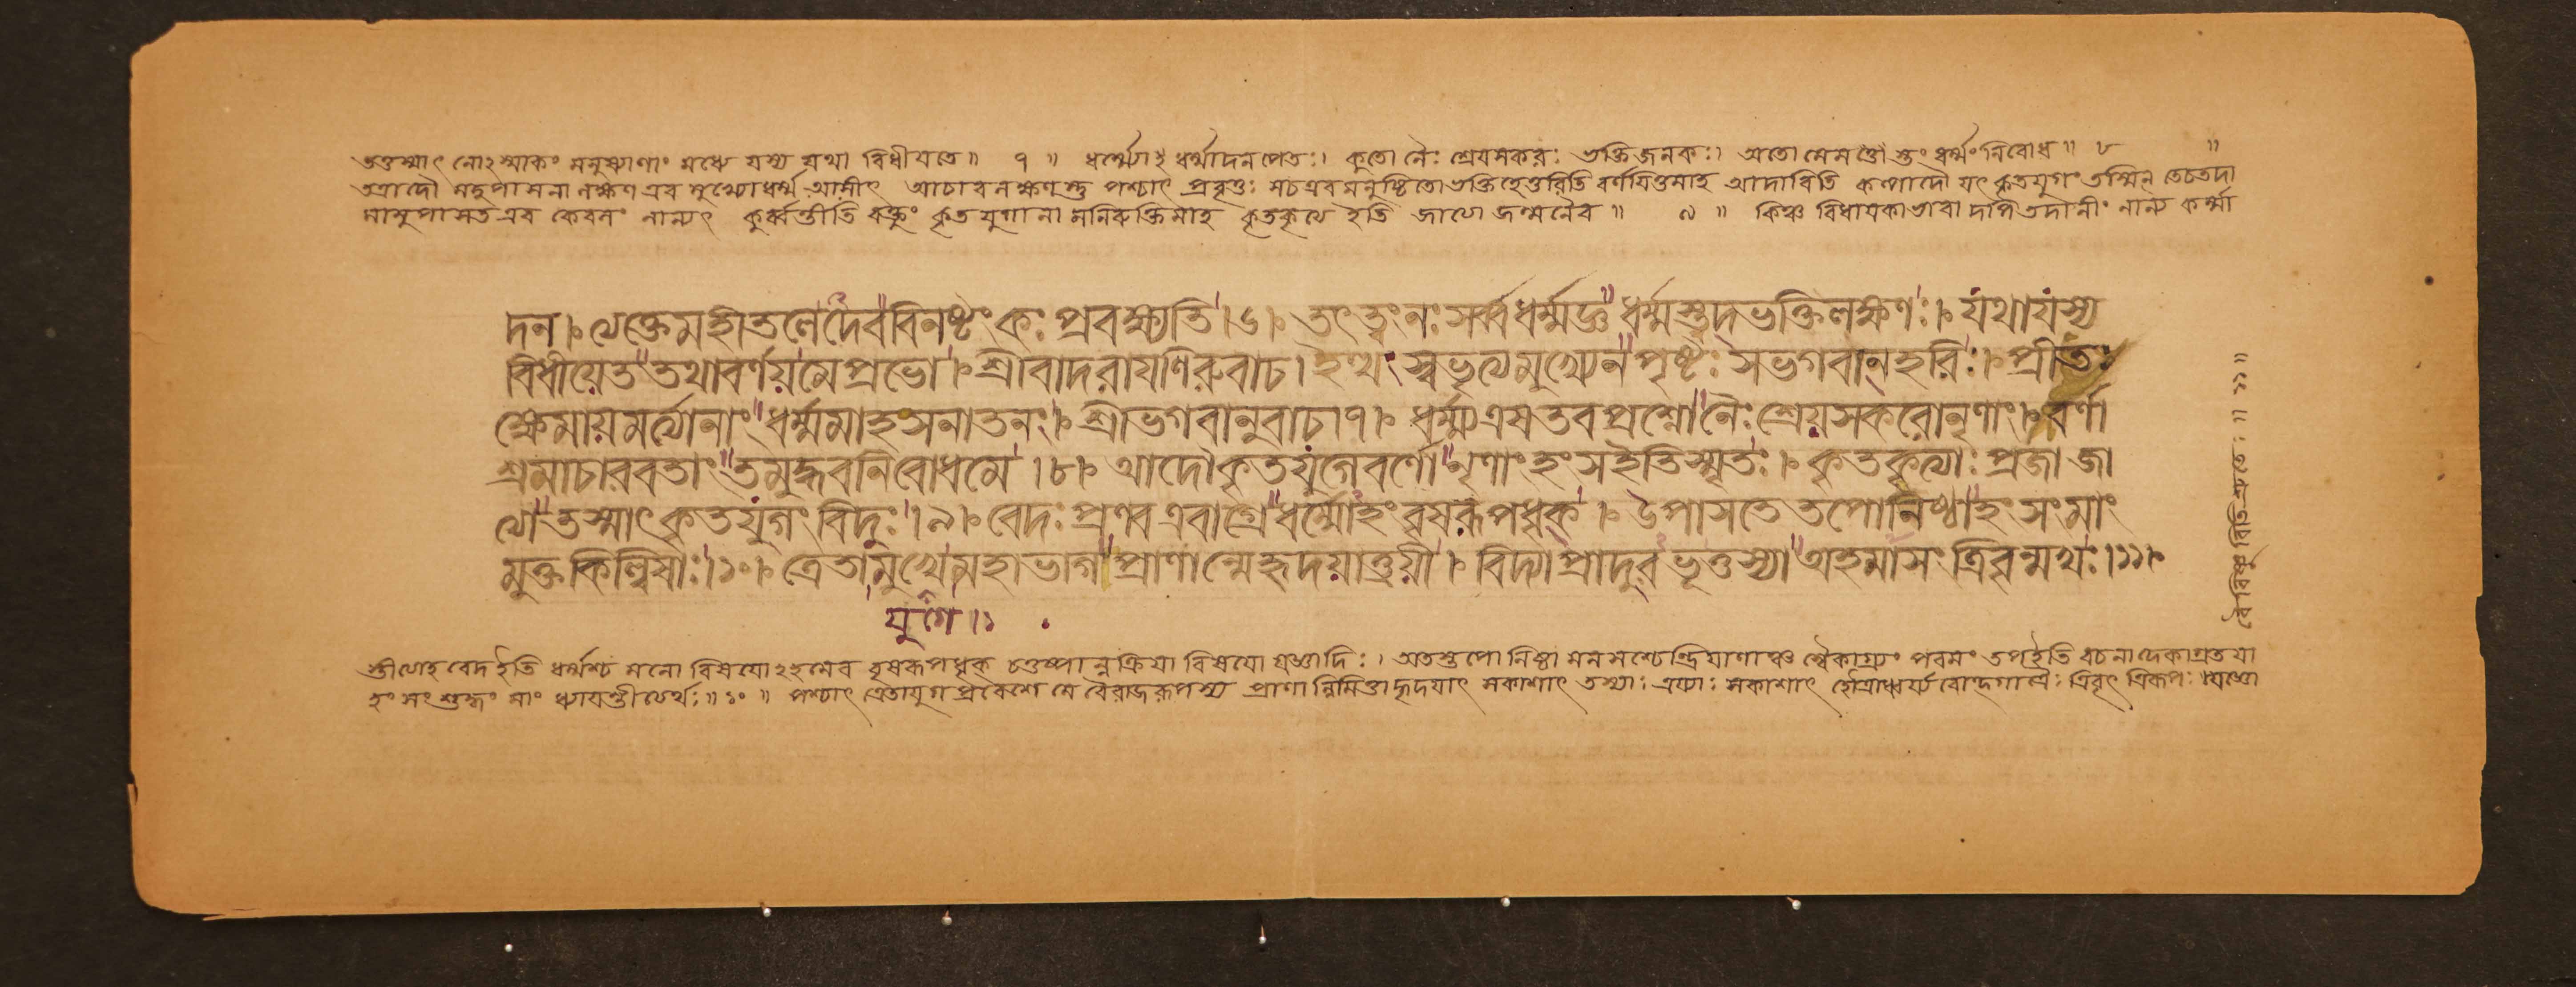 তত্তস্মাৎ নোঽস্মাকং মনুষ্যাণাং মধ্যে যস্য যথা বিধীযতে॥ ৭ ॥ ধর্ম্ম্যোঽ ধর্ম্মাদনপেতঃ। কুতো নৈঃ শ্রেযসকরঃ ভক্তিজনকঃ। অতো মেমত্তো স্তং ধর্ম্মং নিবোধ॥ ৮ ॥
তত্রাদৌ মদুপাসনা লক্ষণ এব মুখ্যোধর্ম্ম আসীৎ আচারলক্ষণস্তু পশ্চাৎ প্রবৃত্তঃ সচএবমনুষ্ঠিতোভক্তিহেতুরিতি বর্ণযিতুমাহ আদাবিতি কল্পাদৌ যৎ কৃতযুগং তস্মিন্ তেচতদা
মামুপাসতএব কেবলং নান্যৎ কুর্ব্বন্তীতি বক্তুং কৃতযুগনামনিরুক্তিমাহ কৃতকৃত্যে ইতি জাত্যে জন্মনৈব॥ ৯ ॥ কিঞ্চ বিধাযকাভাবা দপি তদানীং নান্য কর্ম্মা
দন।ত্যক্তেমহীতলেদেববিনষ্টংকঃপ্রবক্ষ্যতি।৬। তৎত্বংনঃসর্ব্বধর্ম্মজ্ঞধর্ম্মস্ত্বদ্ভক্তিলক্ষণঃ। যথাযস্য
বিধীয়েততথাবর্ণয়মেপ্রভো।শ্রীবাদরাযণিরুবাচ।ইত্থংস্বভৃত্যমুখ্যেনপৃষ্টঃসভগবান্হরিঃ। প্রীতঃ
ক্ষেমায়মর্ত্ত্যানাংধর্ম্মমাহসনাতনং। শ্রীভগবানুবাচ।৭। ধর্ম্ম্যএষতবপ্রশ্নোনৈঃশ্রেয়সকরোনৃণাং।বর্ণা
শ্রমাচারবতাংতমুদ্ধবনিবোধমে।৮। আদৌকৃতযুগেবর্ণোনৃণাংহংসইতিস্মৃতঃ। কৃতকৃত্যাঃপ্রজাজা
ত্যাতস্মাৎকৃতযুগংবিদুঃ।৯। বেদঃপ্রণবএবাগ্রেধর্ম্মোহংবৃষরূপধৃক্। উপাসতেতপোনিষ্ঠাহংসংমাং
মুক্তকিল্বিষাঃ।১০। ত্রেতামুখেমহাভাগপ্রাণান্মেহৃদয়াত্ত্রয়ী। বিদ্যাপ্রাদুরভূত্তস্যাঅহমাসংত্রিবৃন্মখঃ।১১।
যুগে।১
স্তীত্যাহ বেদইতি ধর্ম্মশ্চ মনো বিষযোঽহমেব বৃষরূপধৃক্ চতুষ্পান্নক্রিযা বিষযো যজ্ঞাদিঃ। অতস্তপো নিষ্ঠা মনসশ্চেন্দ্রিযাণাঞ্চ হ্যৈকাগ্র্যং পরমং তপইতি বচনাদেকাগ্রতযা
হংসং শুদ্ধং মাং ধ্যাযন্তীত্যর্থঃ॥১০॥ পশ্চাৎ ত্রেতাযুগপ্রবেশে মে বৈরাজরূপস্য প্রাণান্নিমিত্তাদ্ধৃদযাৎ সকাশাৎ তস্যাঃ ত্রয্যাঃ সকাশাৎ হৌত্রাধ্বর্য্যবোদ্গাত্রৈঃ ত্রিবৃৎ ত্রিরূপঃ যজ্ঞো
বৈ বিষ্ণুরিতি শ্রুতেঃ ॥ ১১ ॥